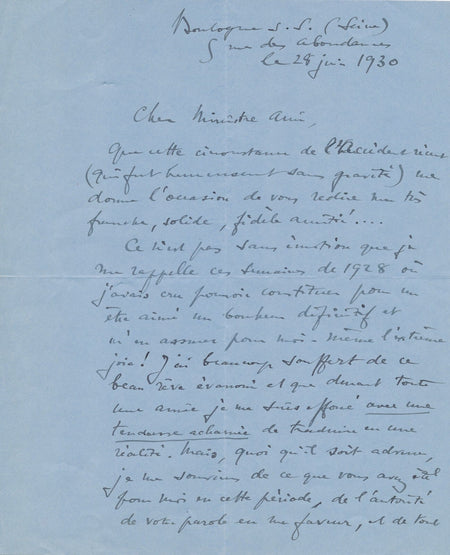 Boulogne s. S. (Seine)
5 rue des abondances
le 28 juin 1930
Cher Ministre Ami,
Que cette circonstance de l'accident récent
(qui fut heureusement sans gravité) me
donne l'occasion de vous redire ma très
franche, solide, fidèle amitié!....
Ce n'est pas sans émotion que je
me rappelle ces semaines de 1928 où
j'avais cru pouvoir constituer pour un
être aimé un bonheur définitif et
m'en assurer pour moi-même l'extrême
joie! J'ai beaucoup souffert de ce
beau rêve évanoui et que durant toute
une année je me suis efforcé avec une
tendresse acharnée de traduire en une
réalité. Mais, quoi qu'il soit advenu,
je me souviens de ce que vous avez été
pour moi en cette période, de l'autorité
de votre parole en ma faveur, et de tout